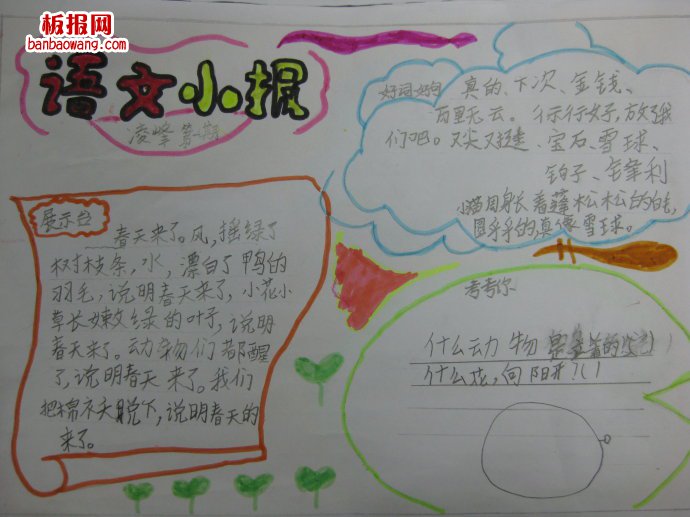 板报网
banbaowang.com
语文小报
凌峰 第一期
好词好句 真的、下次、金钱、
万里无云。行行好,放了我
们吧。又尖又 、宝石、雪球、
钩子、锋利
小猫周身长着蓬松松白的毛,
圆乎乎的真像雪球。
展示台
春天来了。风,摇绿了
树枝条,水,漂白了鸭的
羽毛,说明春天来了,小花小
草长嫩绿的叶子,说明
春天来了。动物们都醒
了,说明春天来了。我们
把棉衣脱下,说明春天的
来了。
考考你
什么动物 的 ( )
什么花,向阳开?( )